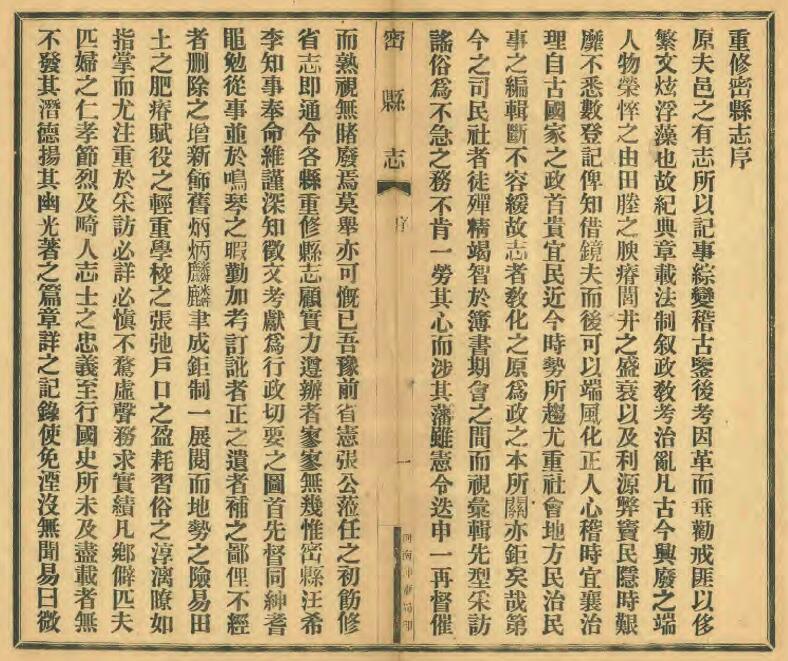 重修密縣志序
原夫邑之有志所以記事綜變稽古鑒後考因革而垂勸戒匪以侈
繁文炫浮藻也故紀典章載法制叙政教考治亂凡古今興廢之端
人物榮悴之由田塍之腴瘠閭井之盛衰以及利源弊竇民隱時艱
靡不悉數登記俾知借鏡夫而後可以端風化正人心稽時宜襄治
理自古國家之政首貴宜民近今時勢所趨尤重社會地方民治民
事之編輯斷不容緩故志者敎化之原爲政之本所關亦鉅矣哉第
今之司民社者徒殫精竭智於簿書期會之間而視彙輯先型采訪
謠俗爲不急之務不肯一勞其心而涉其藩雖憲令迭申一再督催
密縣志
序
一
而熟視無睹廢焉莫舉亦可慨已吾豫前省憲張公蒞任之初飭修
省志即通令各縣重修縣志顧實力遵辦者寥寥無幾惟密縣汪希
李知事奉命維謹深知徵文考獻爲行政切要之圖首先督同紳耆
黽勉從事並於鳴琴之暇勤加考訂訛者正之遺者補之鄙俚不經
者删除之增新飾舊炳炳麟麟聿成鉅制一展閱而地勢之險易田
土之肥瘠賦役之輕重學校之張弛戶口之盈耗習俗之淳漓瞭如
指掌而尤注重於采訪必詳必愼不騖虛聲務求實績凡鄉僻匹夫
匹婦之仁孝節烈及畸人志士之忠義至行國史所未及盡載者無
不發其潛德揚其幽光著之篇章詳之記錄使免湮沒無聞易曰微